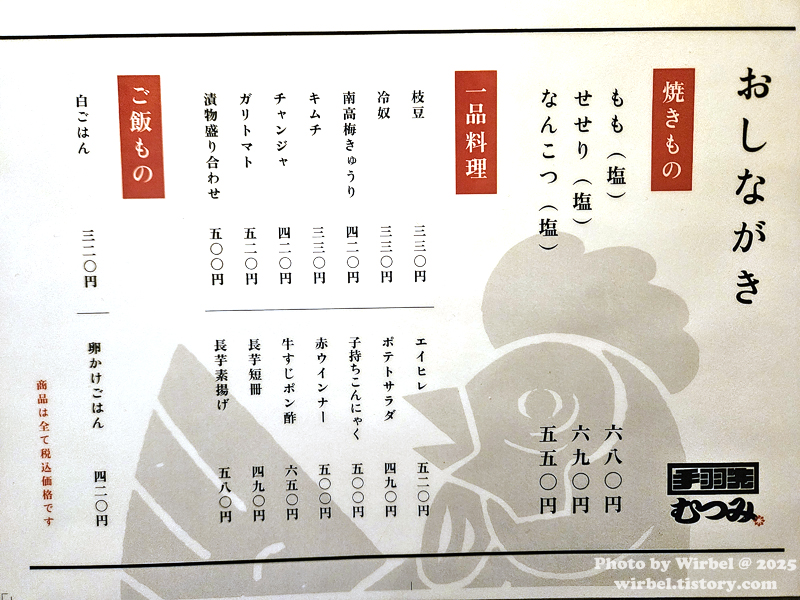 おしながき
手羽先
むつみ
焼きもの
もも（塩） 六八〇円
せせり（塩） 六九〇円
なんこつ（塩） 五五〇円
一品料理
枝豆 三三〇円
冷奴 三三〇円
南高梅きゅうり 四二〇円
キムチ 三三〇円
チャンジャ 四二〇円
ガリトマト 五二〇円
漬物盛り合わせ 五〇〇円
エイヒレ 五二〇円
ポテトサラダ 四九〇円
子持ちこんにゃく 五〇〇円
赤ウインナー 五〇〇円
牛すじポン酢 六五〇円
長芋短冊 四九〇円
長芋素揚げ 五八〇円
ご飯もの
白ごはん 三二〇円
卵かけごはん 四二〇円
商品は全て税込価格です
Photo by Wirbel @ 2025
wirbel.tistory.com